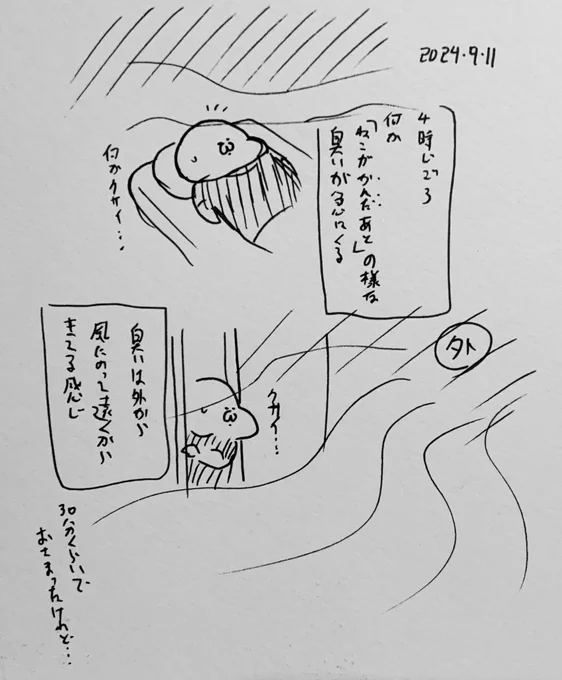 2024・9・11
4時じごろ
何か
「ねこがかんだあと」の様な
臭いが急にくる
何かクサイ…
外
クサイ…
臭いは外から
風にのって遠くから
きてる感じ
30分くらいで
おさまったけれど…